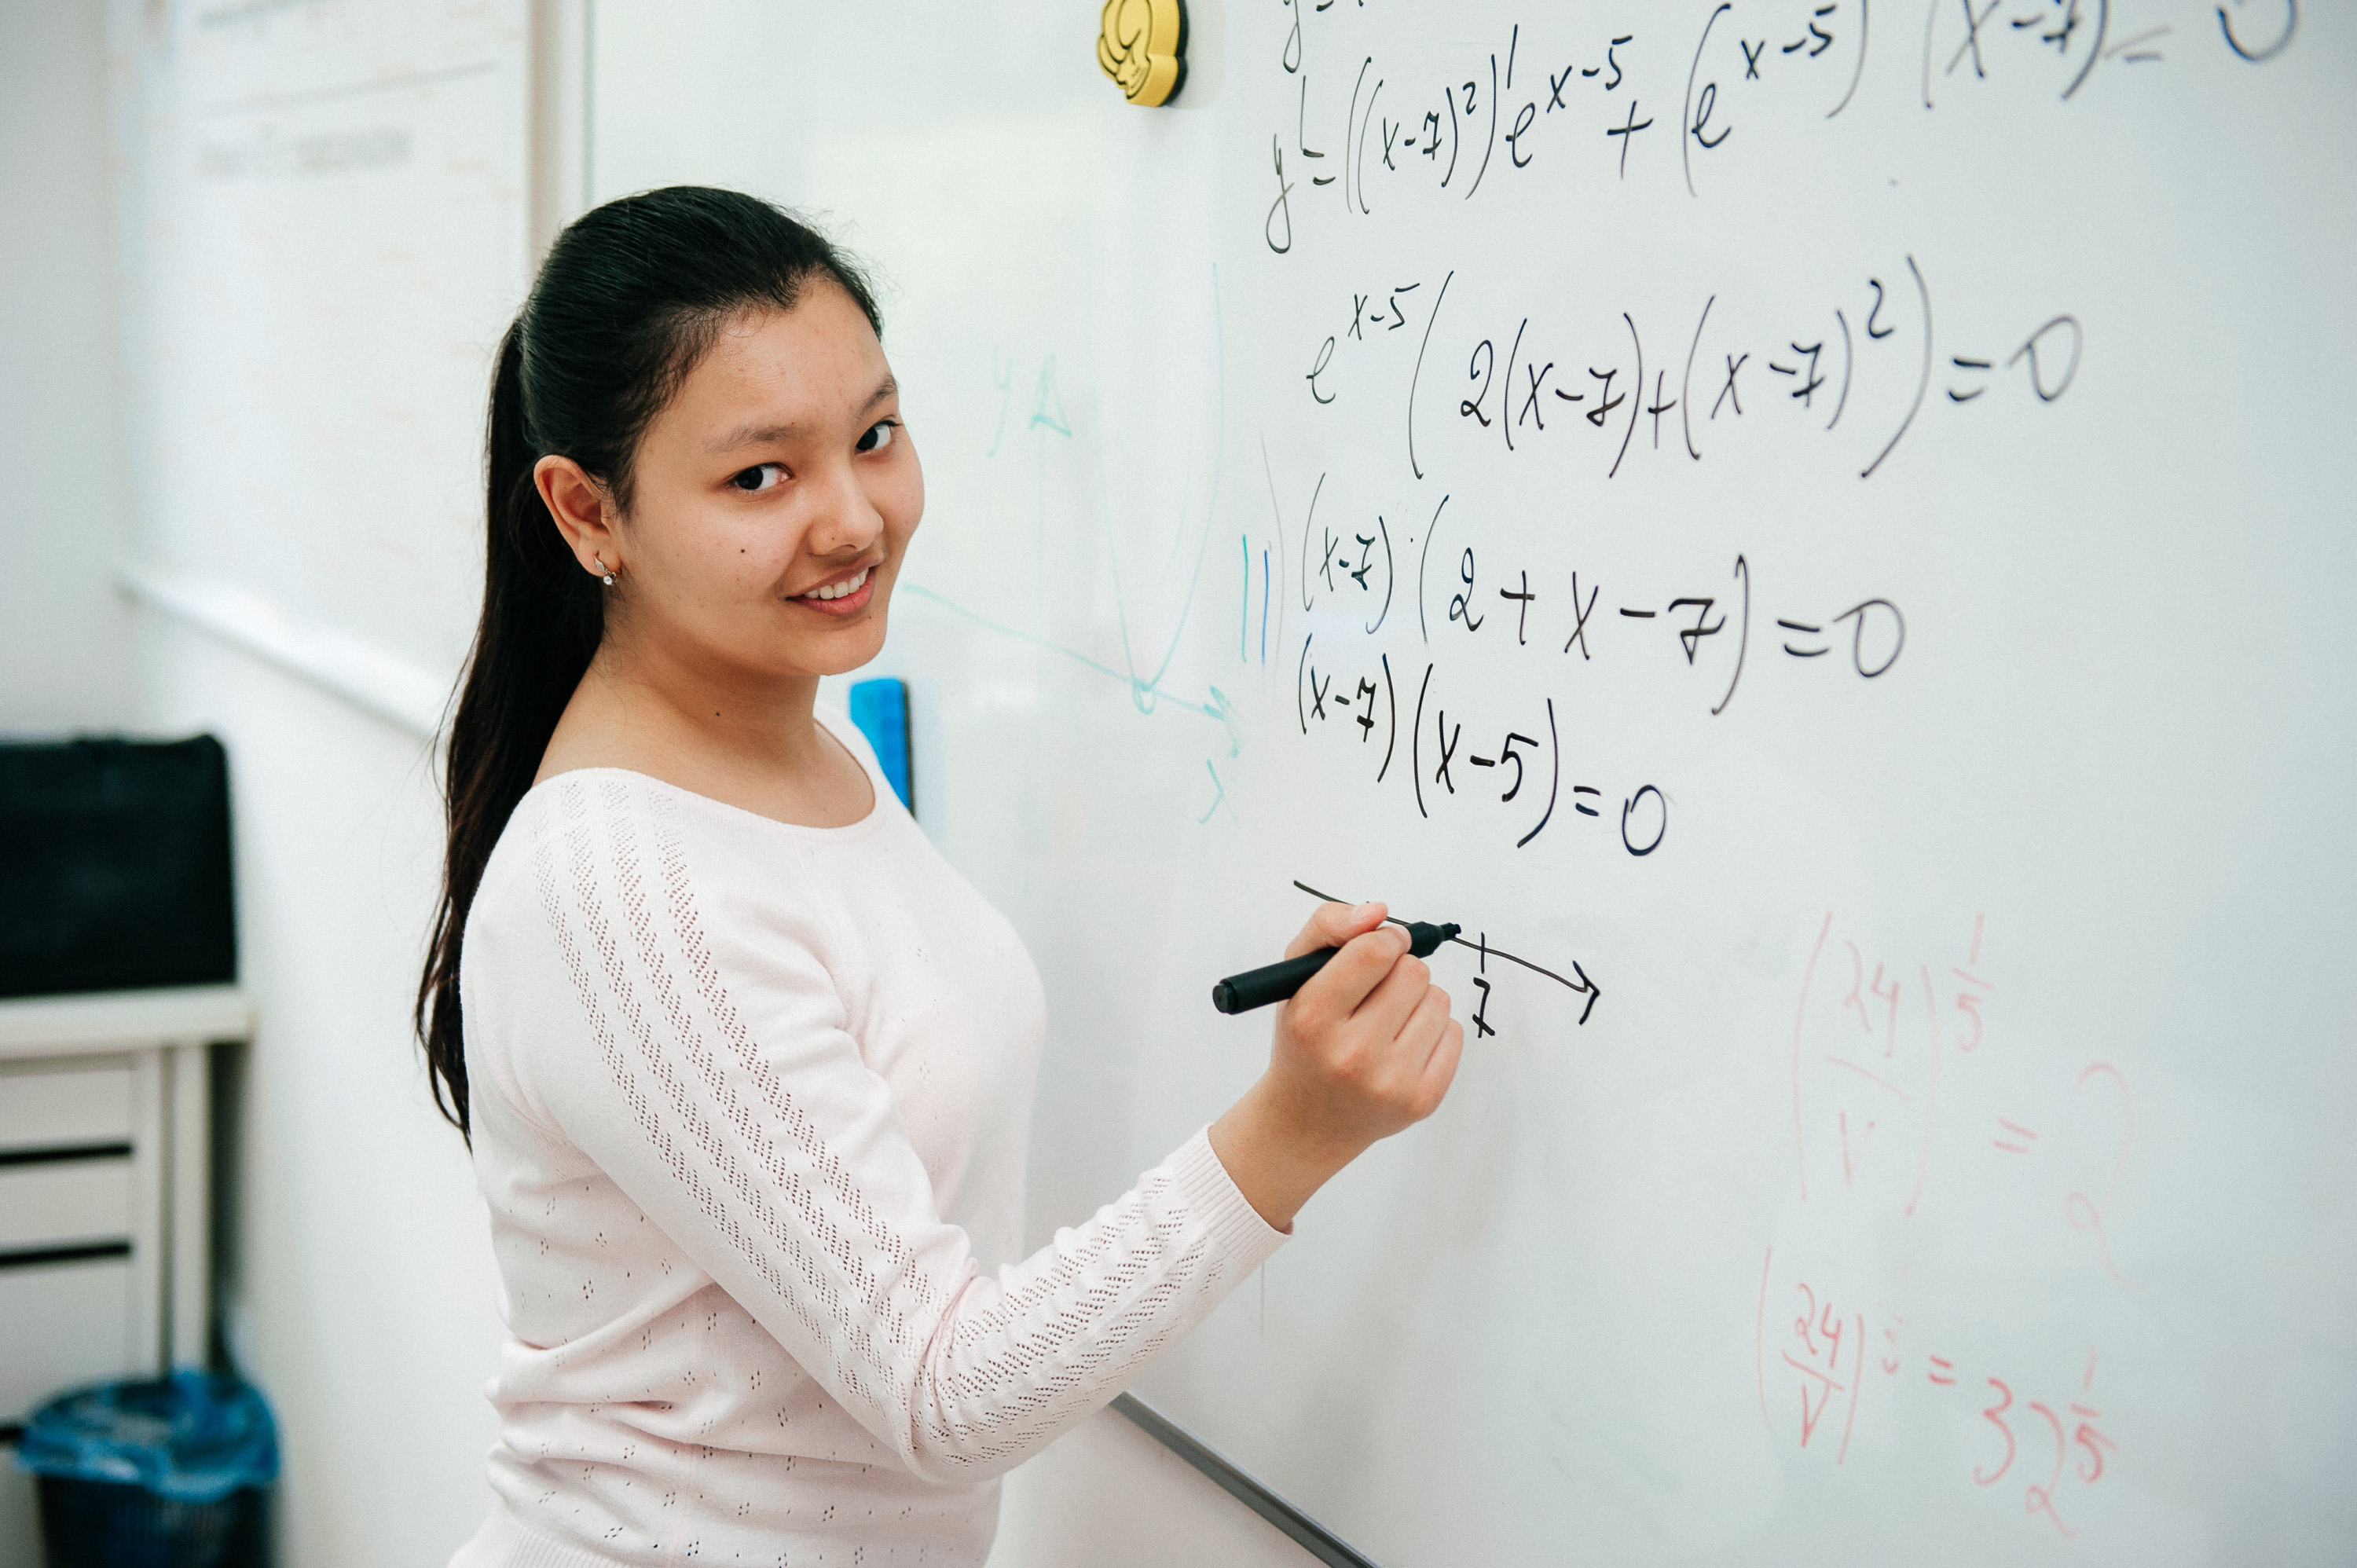 y' = ((x-7)²)' e^(x-5) + (e^(x-5)) (x-7) = 0
e^(x-5) (2(x-7)+(x-7)²) = 0
(x-7)·(2+x-7) = 0
(x-7)(x-5) = 0
7
y
x
(24/V)^(1/5) = ?
(24/V) = 32^(1/5)